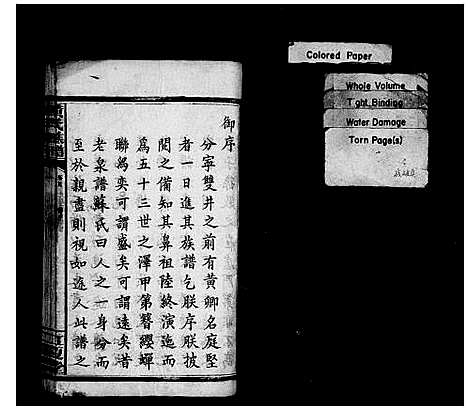 御序
分寧雙井之前有黃卿名庭堅
者一日進其族譜乞朕序朕披
閱之備知其鼻祖陸終演迤而
爲五十三世之澤甲第簪纓蟬
聯舄奕可謂盛矣可謂遠矣昔
老泉譜蘇氏曰人之一身分而
至於親盡則視如途人此譜之
Colored Paper
Whole Volume
Tight Binding
Water Damage
Torn Page(s)